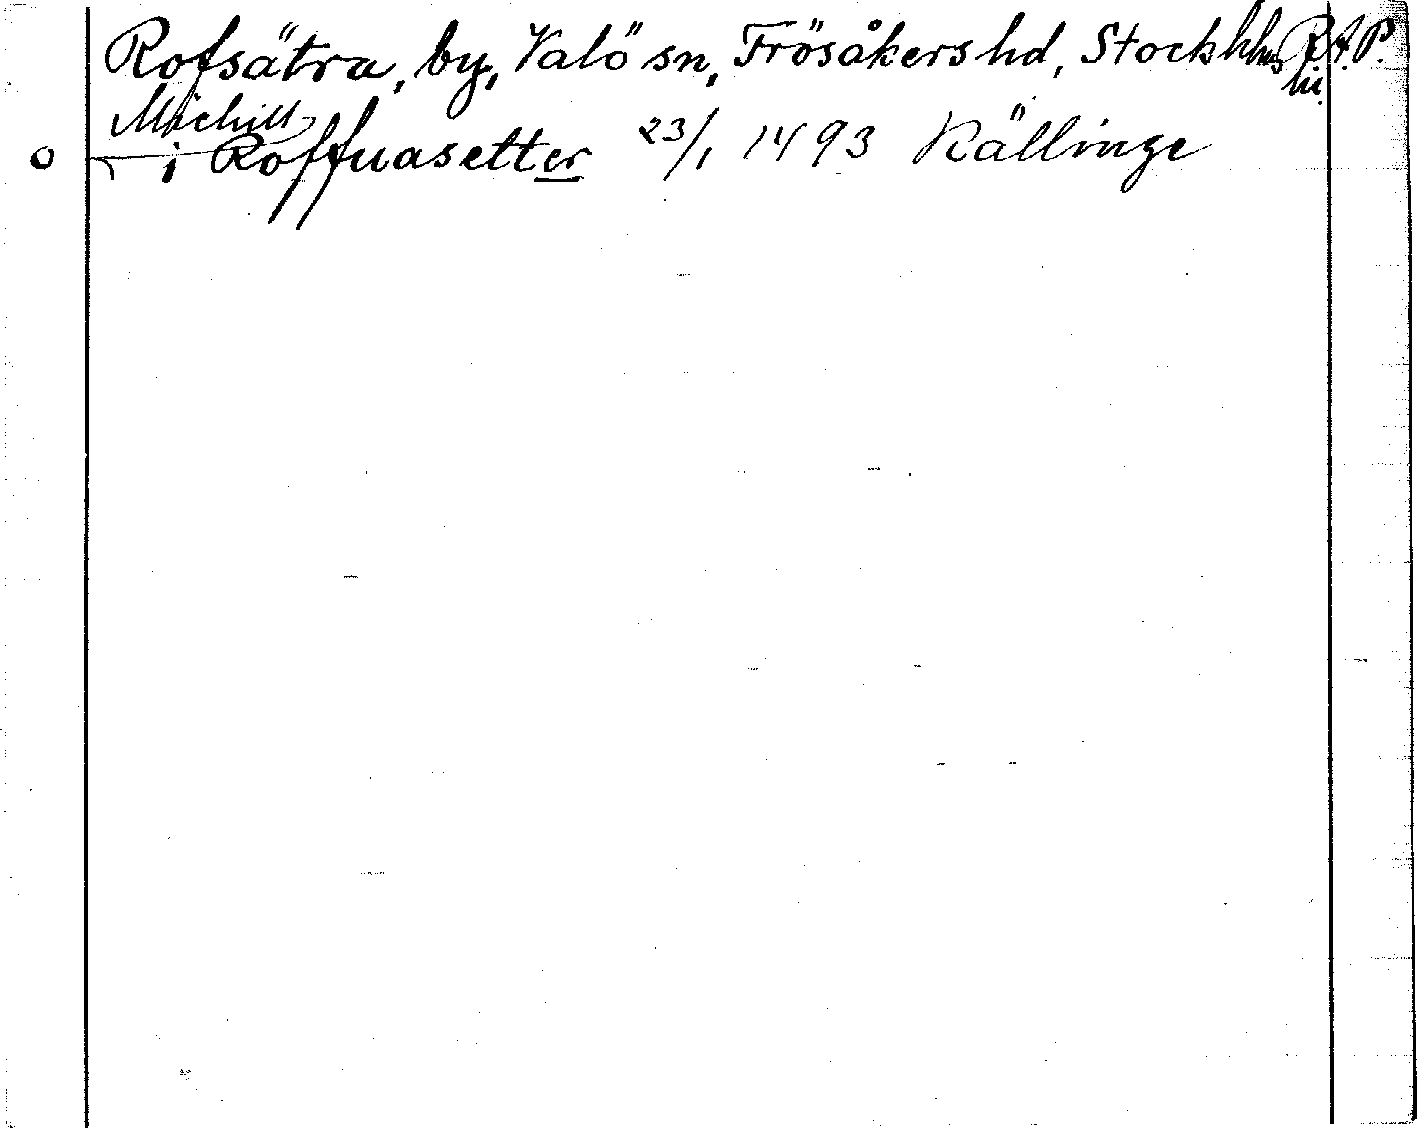 Rofsätra, by, Valö sn, Frösåkers hd, Stockhhms R.A.P.
län.
Michill
o i Roffuasetter 23/1 1493 Källinge